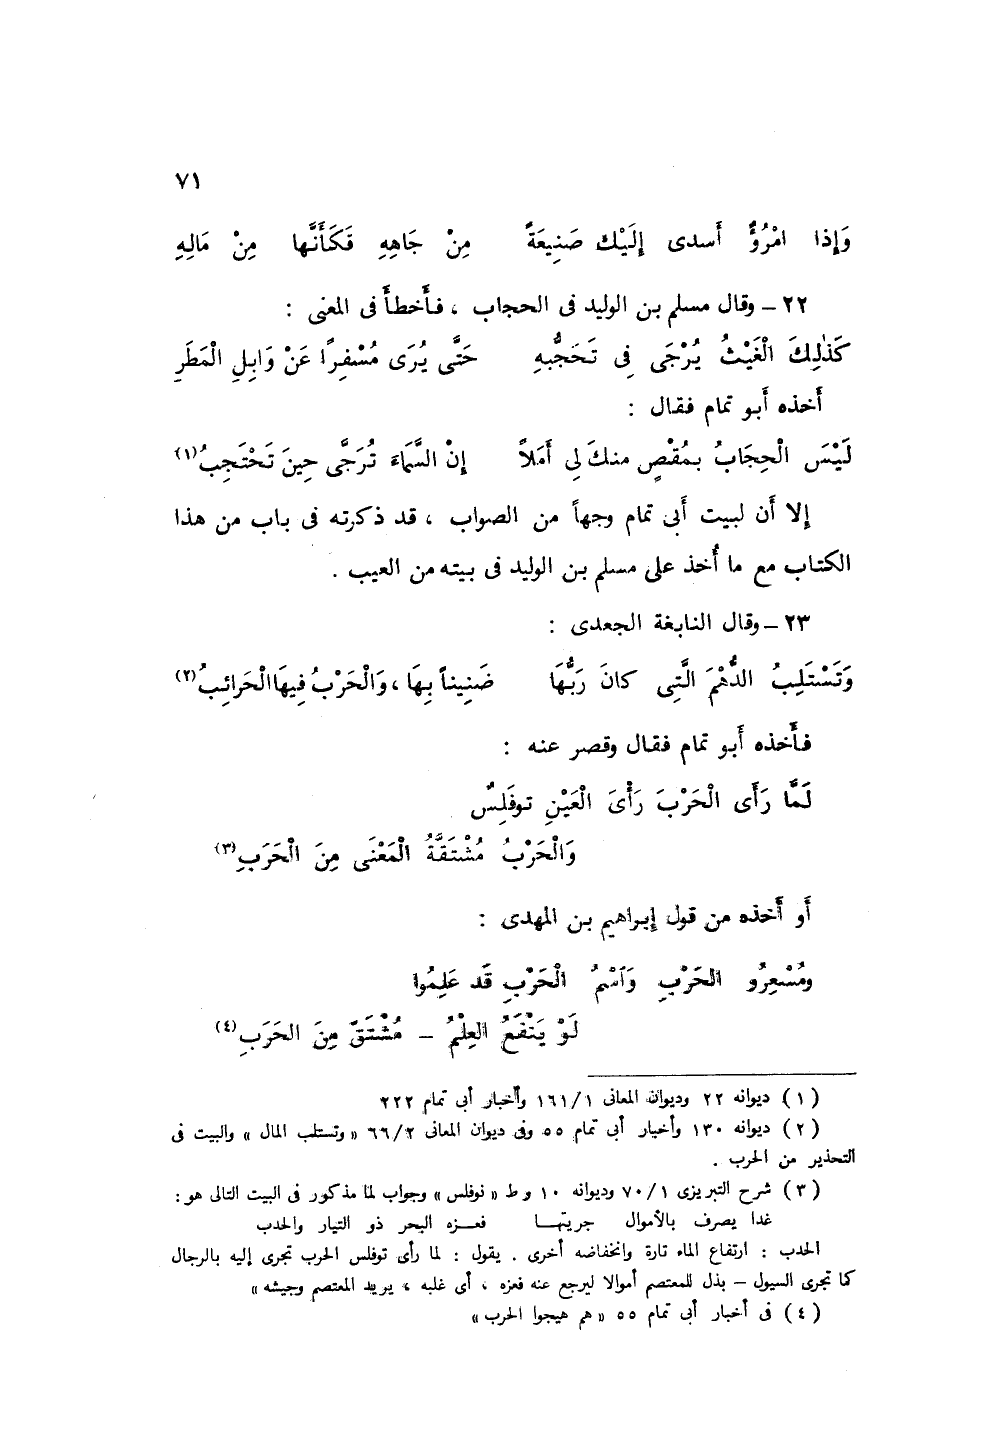 ٧١
وَإِذا امْرُؤٌ أَسدى إِلَيْكَ صَنِيعَةً مِنْ جَاهِهِ فَكَأَنَّها مِنْ مَالِهِ
٢٢ – وقال مسلم بن الوليد فى الحجاب ، فأخطأ فى المعنى :
كَذٰلِكَ الْغَيْثُ يُرْجَى فِى تَحَجُّبِهِ حَتَّى يُرَى مُسْفِرًا عَنْ وَابِلِ الْمَطَرِ
أخذه أبو تمام فقال :
لَيْسَ الْحِجَابُ بِمُقْصٍ منكَ لِى أَمَلاً إِنْ السَّمَاءَ تُرَجَّى حِينَ تَحْتَجِبُ(١)
إلا أن لبيت أبى تمام وجهاً من الصواب ، قد ذكرته فى باب من هذا
الكتاب مع ما أُخذ على مسلم بن الوليد فى بيته من العيب .
٢٣ – وقال النابغة الجعدى :
وَتَسْتَلِبُ الدُّهْمَ الَّتِى كانَ رَبُّهَا ضَنِيناً بِهَا ، وَالْحَرْبُ فِيهَا الْحَرائِبُ(٢)
فأخذه أبو تمام فقال وقصر عنه :
لَمَّا رَأَى الْحَرْبَ رَأْىَ الْعَيْنِ توفَلِسٌ
وَالْحَرْبُ مُشْتَقَّةُ الْمَعْنَى مِنَ الْحَرَبِ(٣)
أو أخذه من قول إبراهيم بن المهدى :
ومُسْعِرُو الحَرْبِ وَٱسْمُ الْحَرْبِ قَد عَلِمُوا
لَوْ يَنْفَعُ العِلْمُ – مُشْتَقٌّ مِنَ الحَرَبِ(٤)
(١) ديوانه ٢٢ وديوان المعانى ١/١٦١ وأخبار أبى تمام ٢٢٢
(٢) ديوانه ١٣٠ وأخبار أبى تمام ٥٥ وفى ديوان المعانى ٢/٦٦ « وتستلب المال » والبيت فى
التحذير من الحرب .
(٣) شرح التبريزى ١/٧٠ وديوانه ١٠ و ط « نوفلس » وجواب لما مذكور فى البيت التالى هو :
غدا يصرف بالأموال جريتها فعزه البحر ذو التيار والحدب
الحدب : ارتفاع الماء تارة وانخفاضه أخرى . يقول : لما رأى توفلس الحرب تجرى إليه بالرجال
كما تجرى السيول – بذل للمعتصم أموالا ليرجع عنه فعزه ، أى غلبه ، يريد المعتصم وجيشه »
(٤) فى أخبار أبى تمام ٥٥ « هم هيجوا الحرب »